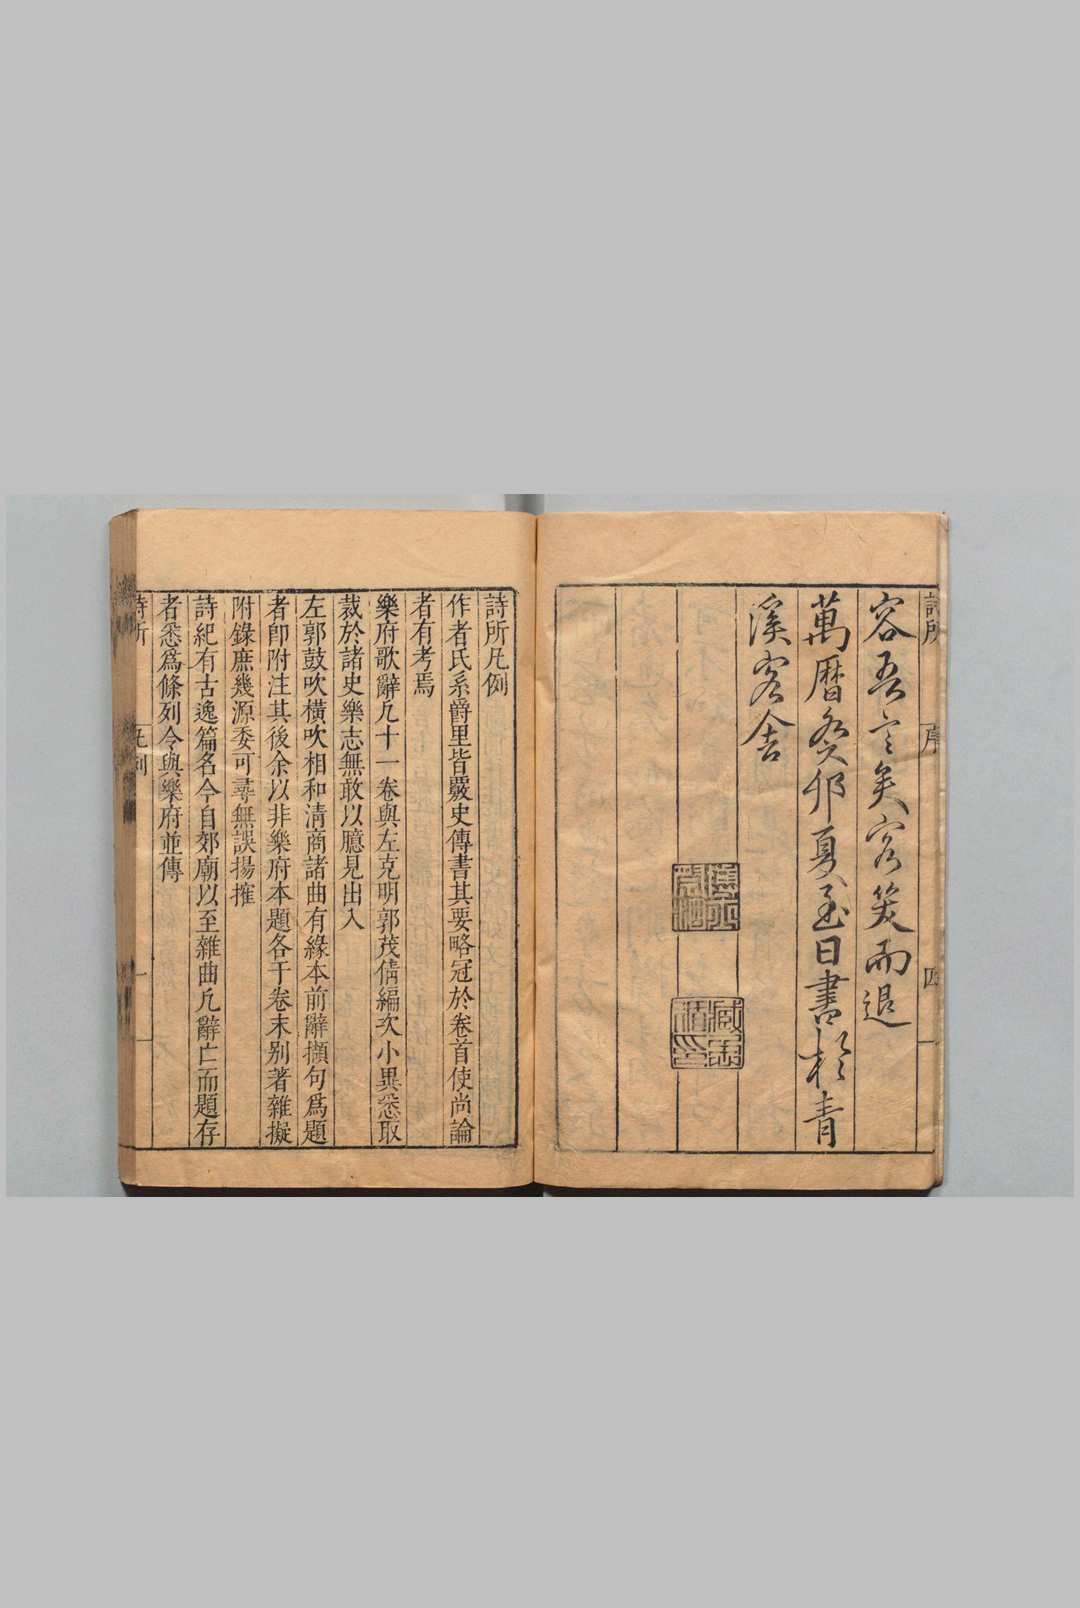 容吾言矣客笑而退
萬曆癸卯夏至日書於青
溪客舍
詩所
序
四
詩所凡例
作者氏系爵里皆覈史傳書其要略冠於卷首使尚論
者有考焉
樂府歌辭凡十一卷與左克明郭茂倩編次小異悉取
裁於諸史樂志無敢以臆見出入
左郭鼓吹橫吹相和清商諸曲有緣本前辭擷句爲題
者卽附注其後余以非樂府本題各于卷末别著雜擬
附錄庶幾源委可尋無誤揚搉
詩紀有古逸篇名今自郊廟以至雜曲凡辭亡而題存
者悉爲條列令與樂府並傳
詩所
凡例